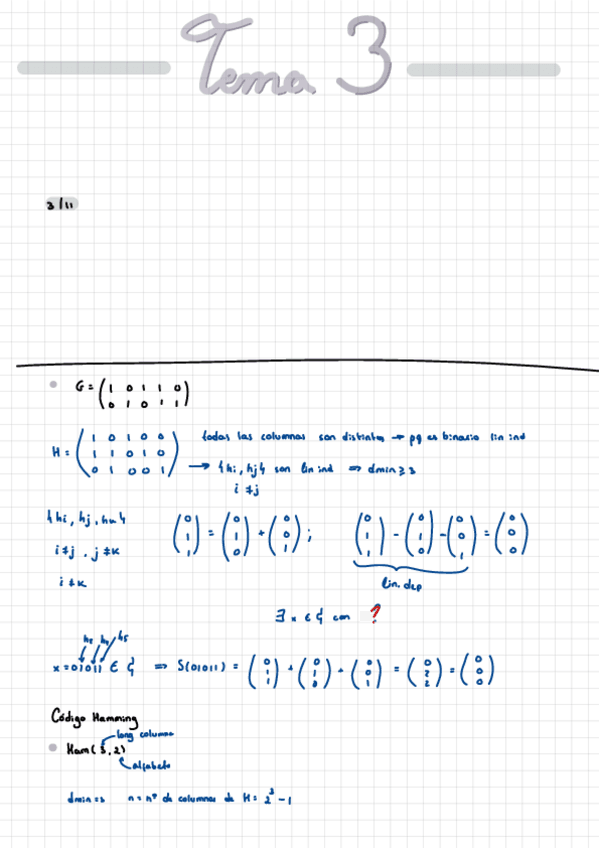 Tema 3
3/11
G = ( 1 0 1 1 0
0 1 0 1 1 )
H = ( 1 0 1 0 0
1 1 0 1 0
0 1 0 0 1 )
todas las columnas son distintas → pq es binario lin ind
→ {hi, hj} son lin ind ⇒ dmin ≥ 3
i ≠ j
{hi, hj, hk}
i ≠ j, j ≠ k
i ≠ k
(0 1 1) = (0 1 0) + (0 0 1); (0 1 1) - (0 1 0) - (0 0 1) = (0 0 0)
lin. dep
∃ x ∈ C con ?
h2 h4 h5
x = 01011 ∈ C ⇒ S(01011) = (0 1 1) + (0 1 0) + (0 0 1) = (0 2 2) = (0 0 0)
Código Hamming
long columnas
Ham(3,2)
alfabeto
dmin = 3 n = nº de columnas de H = 2³ - 1